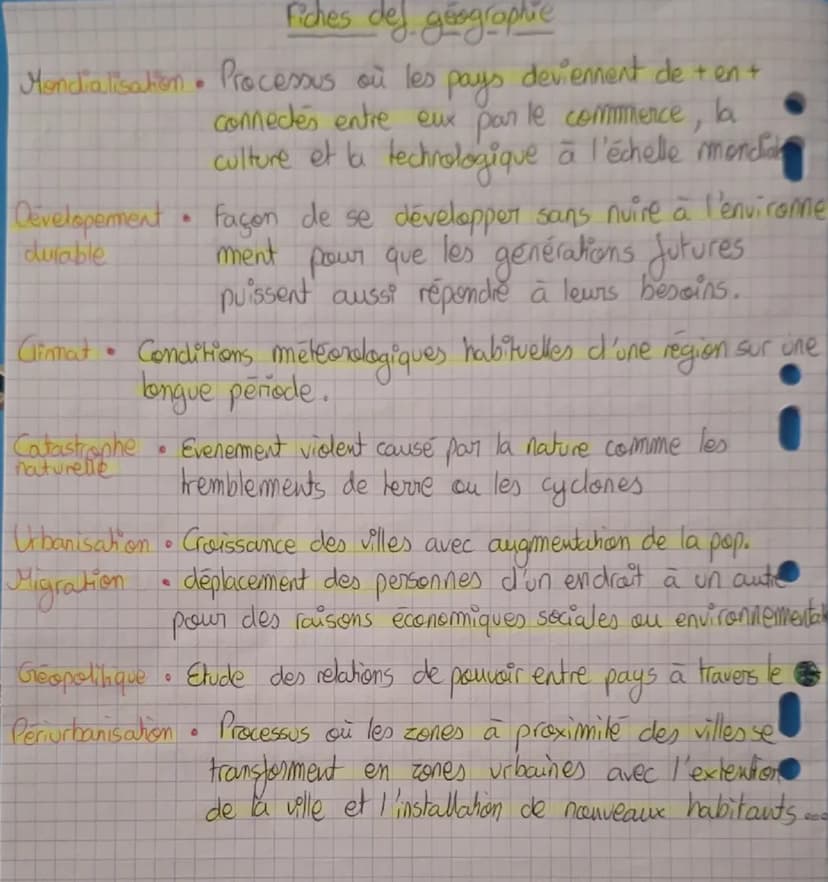 Fiches def géographie
Mondialisation • Processus où les pays deviennent de + en +
connectés entre eux par le commmerce, la
culture et la technologique à l'échelle mondia
Dévelopement • Façon de se développer sans nuire à l'environne
durable ment pour que les générations futures
puissent aussi répondre à leurs besoins.
Climat • Conditions météorologiques habituelles d'une région sur une
longue période.
Catastrophe • Evenement violent causé par la nature comme les
naturelle tremblements de terre ou les cyclones
Urbanisation • Croissance des villes avec augmentation de la pop.
Migration • déplacement des personnes d'un endroit à un autre
pour des raisons économiques sociales ou environnemental
Géopolitique • Etude des relations de pouvoir entre pays à travers le
Périurbanisation • Processus où les zones à proximité des villes se
transforment en zones urbaines avec l'extention
de la ville et l'installation de nouveaux habitants...